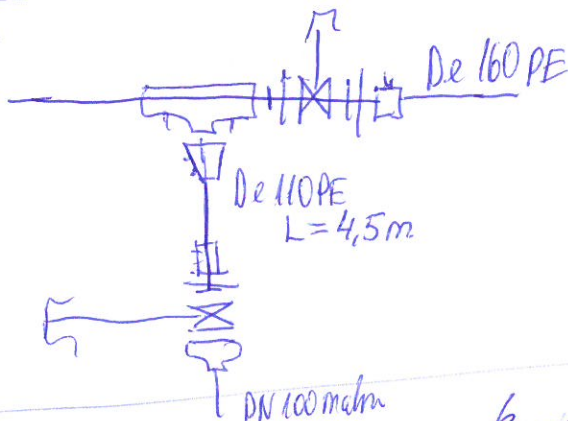 De 160 PE
De 110 PE
L = 4,5 m
DN 100 malm
6